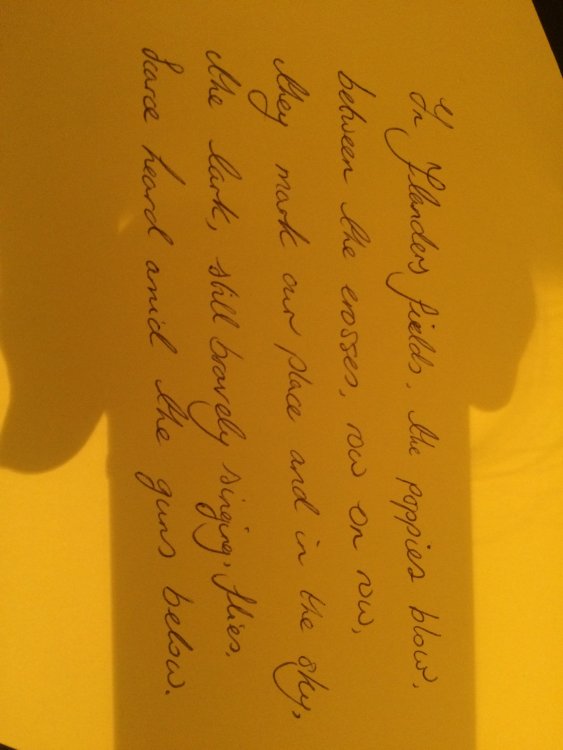 In Flanders fields. the poppies blow.
between the crosses, row on row,
they mark our place and in the sky,
the lark, still bravely singing, flies.
Scarce heard amid the guns below.